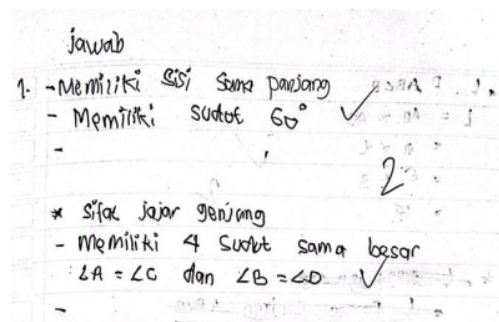 jawab
1. - Memiliki sisi sama panjang
- Memiliki sudut 60°
-
2
* Sifat jajar genjang
- Memiliki 4 sudut sama besar
∠A = ∠C dan ∠B = ∠D
-